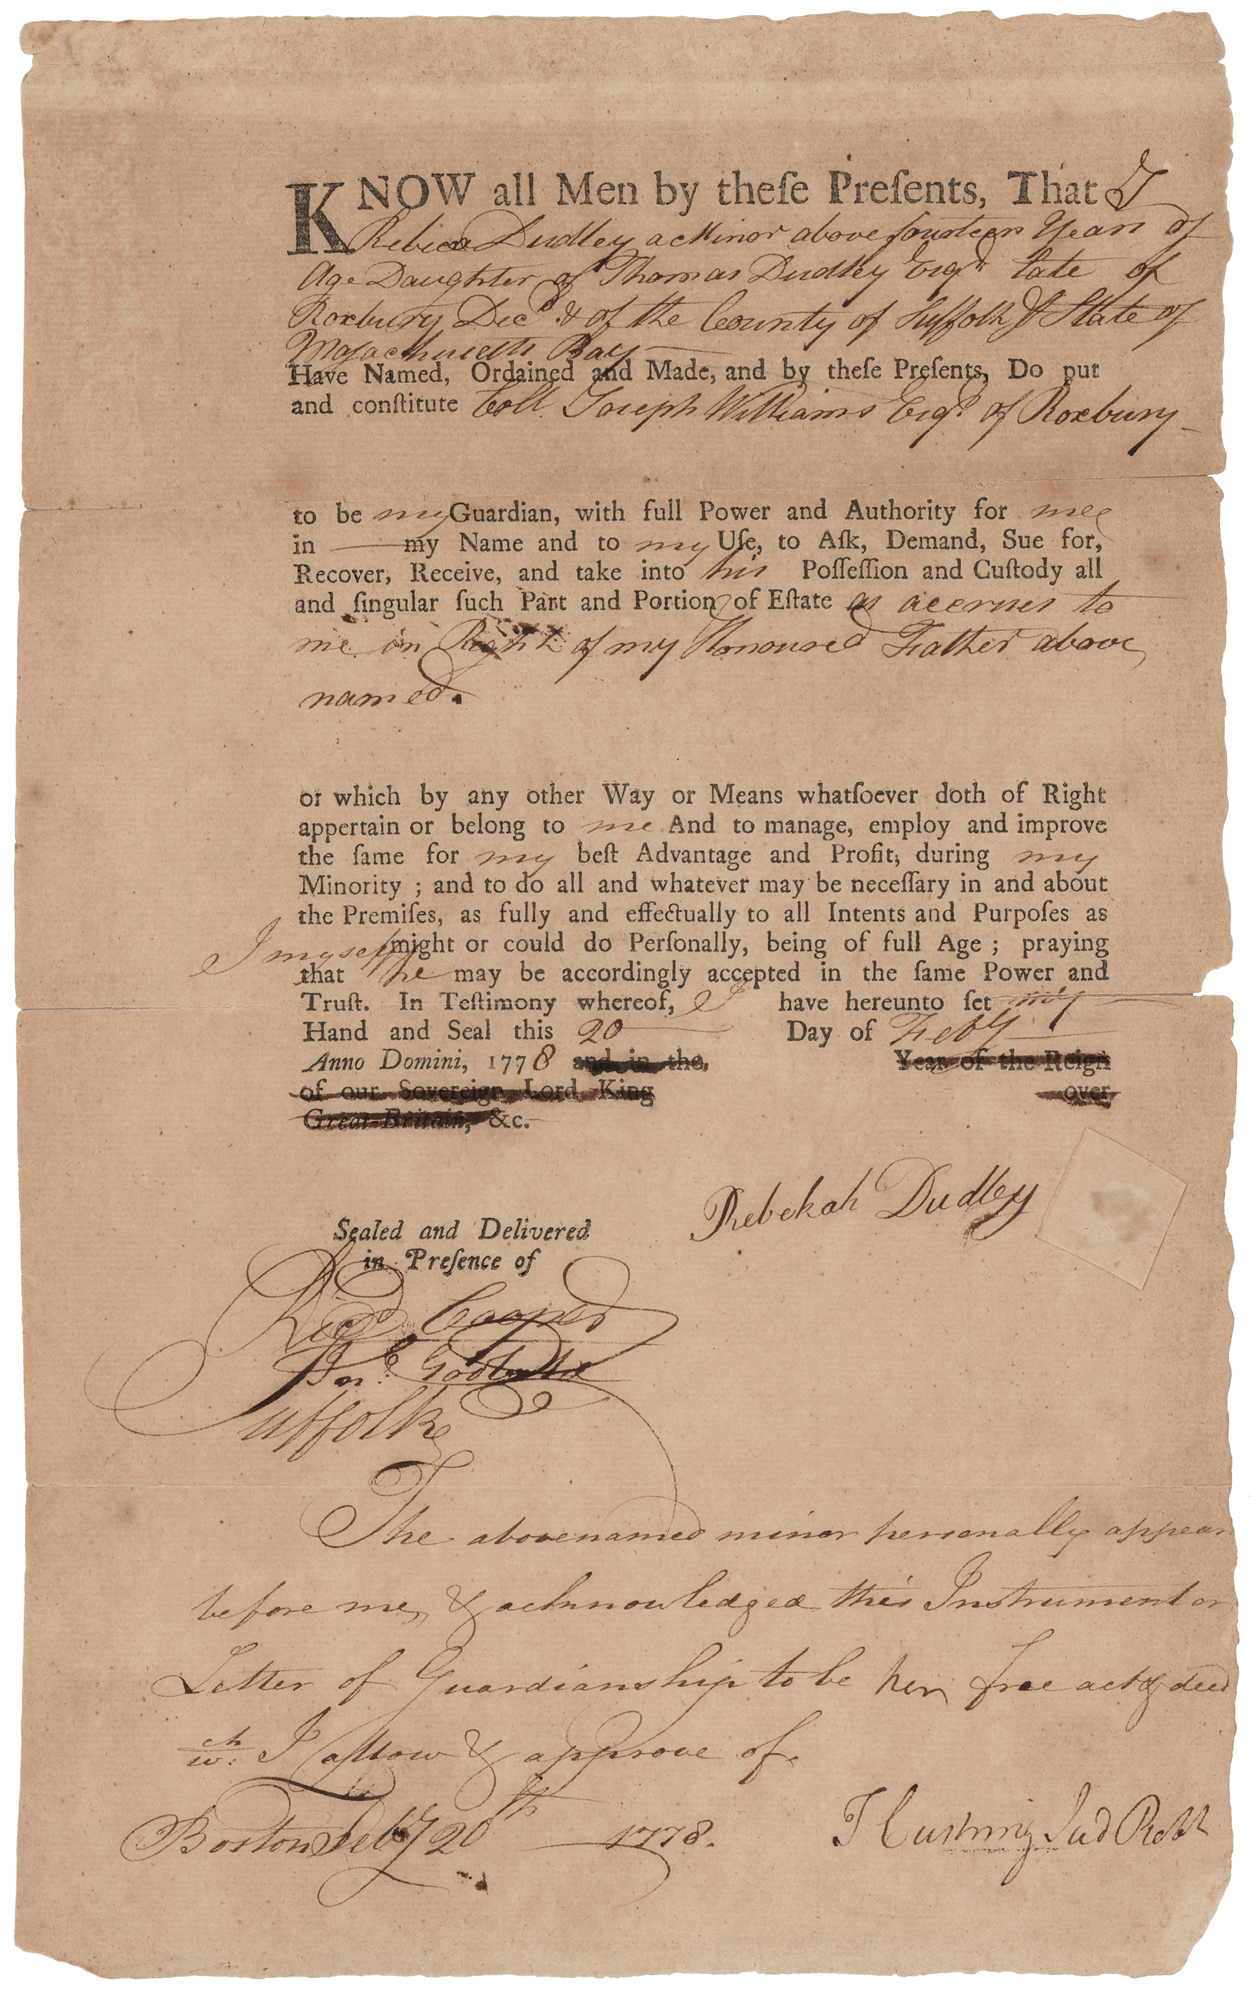 KNOW all Men by theſe Preſents, That I
Rebica Dudley a Minor above fourteen Years of
Age Daughter of Thomas Dudley Esqr late of
Roxbury Decd & of the County of Suffolk & State of
Masachusetts Bay
Have Named, Ordained and Made, and by theſe Preſents, Do put
and conſtitute Coll. Joseph Williams Esqr. of Roxbury
to be my Guardian, with full Power and Authority for mee
in my Name and to my Uſe, to Aſk, Demand, Sue for,
Recover, Receive, and take into his Poſſeſſion and Cuſtody all
and ſingular ſuch Part and Portion of Eſtate as accrues to
me in Right of my Honoured Father above
named.
or which by any other Way or Means whatſoever doth of Right
appertain or belong to me And to manage, employ and improve
the ſame for my beſt Advantage and Profit, during my
Minority ; and to do all and whatever may be neceſſary in and about
the Premiſes, as fully and effectually to all Intents and Purpoſes as
I myself might or could do Perſonally, being of full Age ; praying
that he may be accordingly accepted in the ſame Power and
Truſt. In Teſtimony whereof, I have hereunto ſet my
Hand and Seal this 20 Day of Feby
Anno Domini, 1778 and in the Year of the Reign
of our Sovereign Lord King over
Great-Britain, &c.
Rebekah Dudley
Sealed and Delivered
in Preſence of
Richd Cooper
Suffolk
The abovenamed minor personally appear
before me, & acknowledged this Instrument or
Letter of Guardianship to be her free act & deed
wch: I allow & approve of.
Boston Feby 20th 1778.
T Cushing Jud Probt